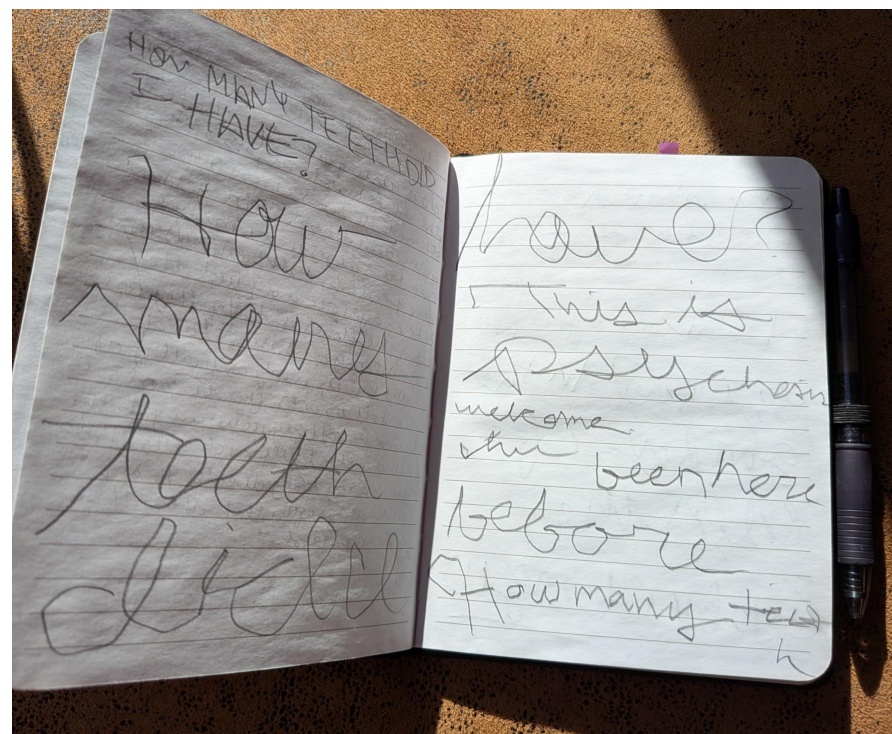 HOW MANY TEETH DID
I HAVE?
How
many
teeth
did I
have?
This is
psychosis
welcome
been here
before
How many teet
h